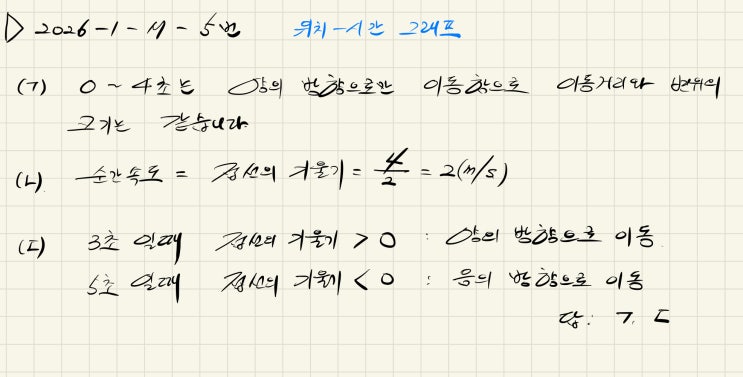 ▷ 2026-1-M-5번 위치-시간 그래프
(ㄱ) 0 ~ 4초는 양의 방향으로만 이동함으로 이동거리와 변위의
크기는 같습니다.
(ㄴ) 순간속도 = 접선의 기울기 = 4/2 = 2(m/s)
(ㄷ) 3초 일때 접선의 기울기 > 0 : 양의 방향으로 이동
5초 일때 접선의 기울기 < 0 : 음의 방향으로 이동
답: ㄱ, ㄷ